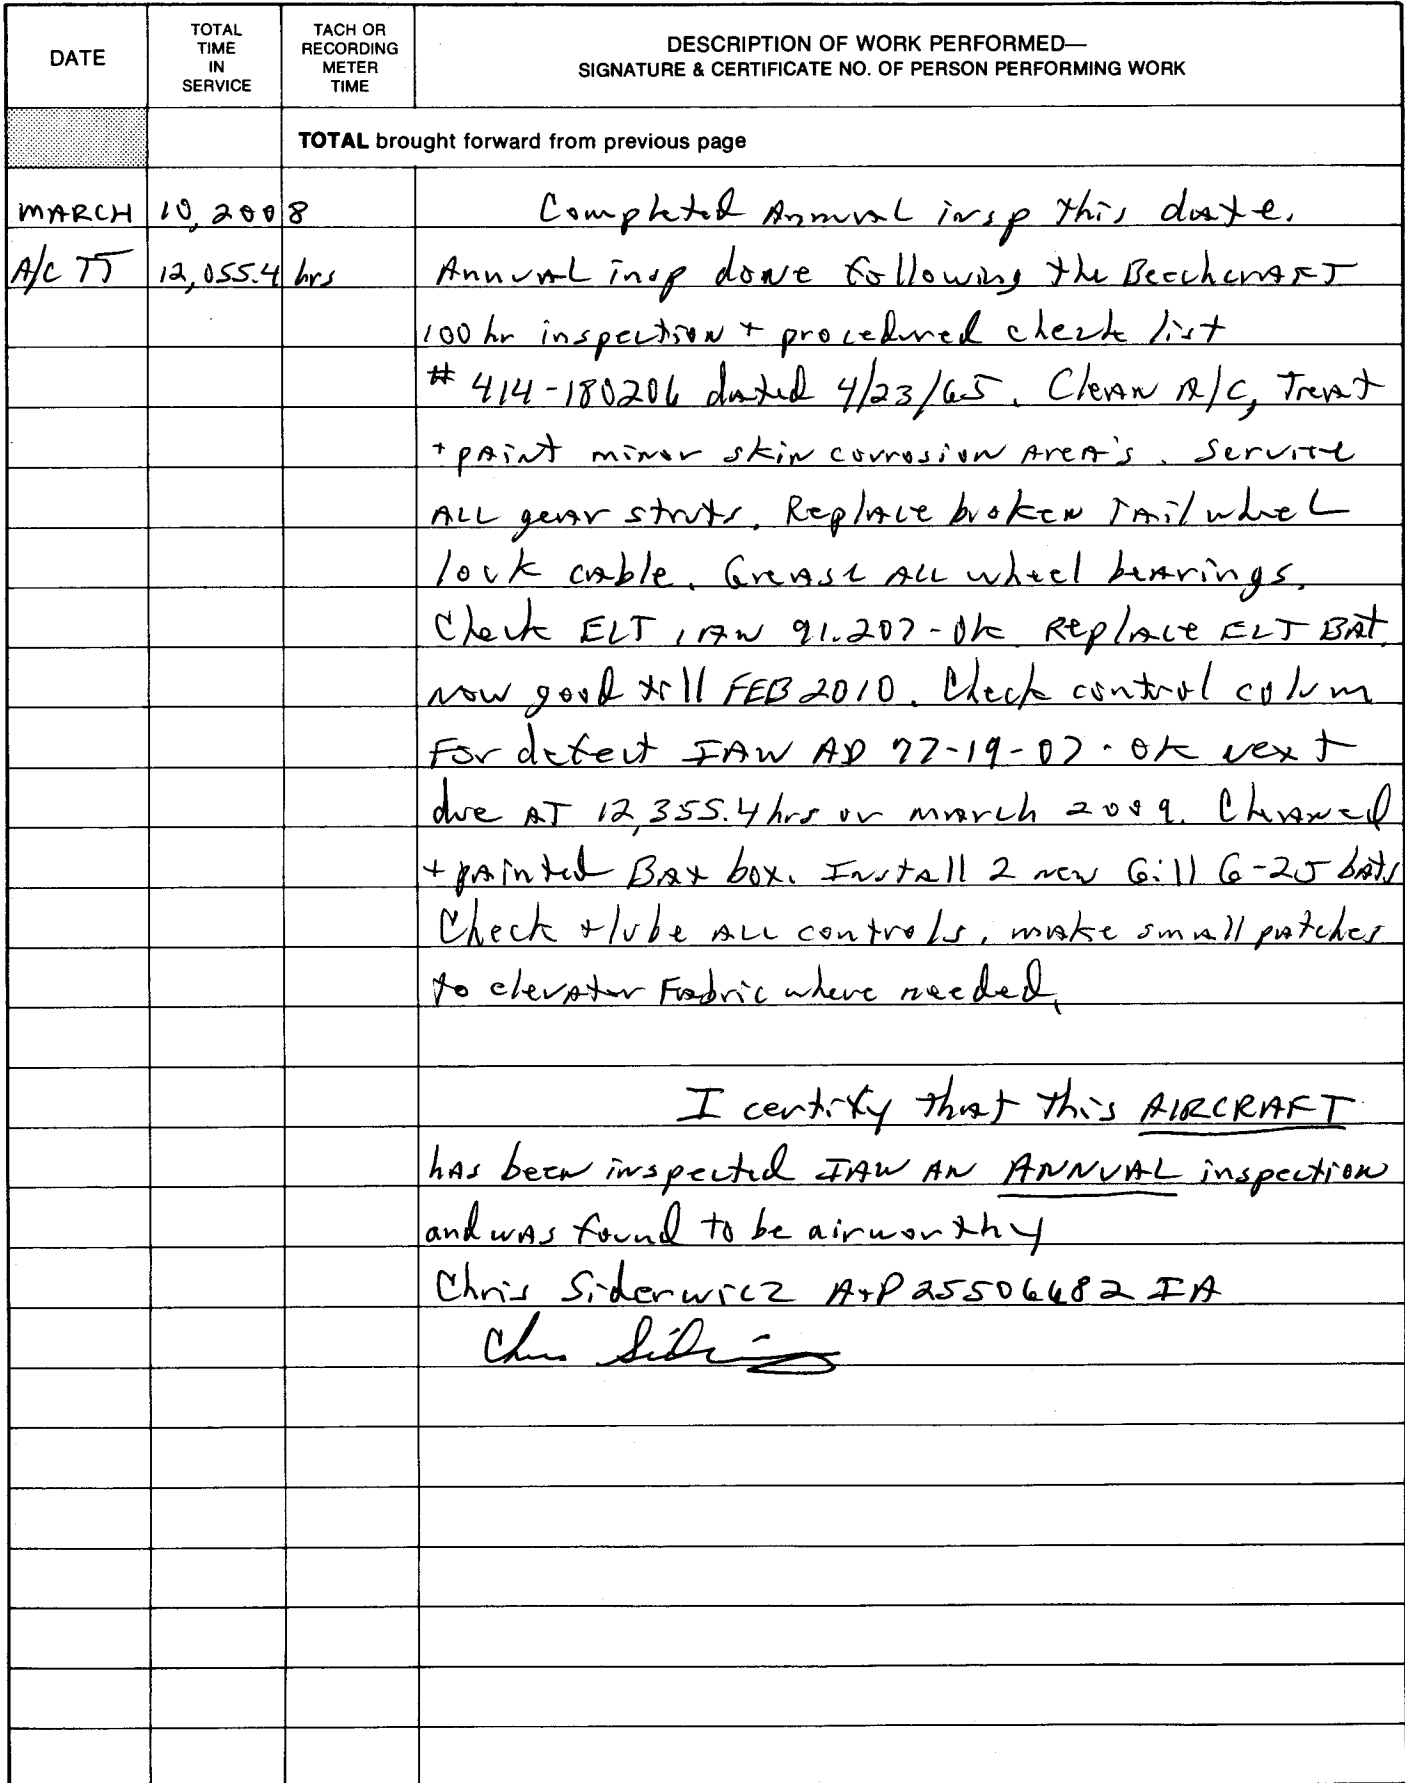 DATE
TOTAL
TIME
IN
SERVICE
TACH OR
RECORDING
METER
TIME
DESCRIPTION OF WORK PERFORMED—
SIGNATURE & CERTIFICATE NO. OF PERSON PERFORMING WORK
TOTAL brought forward from previous page
MARCH 10, 2008 Completed Annual insp this date.
A/C TT 12,055.4 hrs Annual insp done following the Beechcraft
100 hr inspection + procedured check list
# 414-180206 dated 4/23/65. Clean A/C, Treat
+ paint minor skin corrosion area's. Service
ALL gear struts. Replace broken Tail wheel
lock cable. Grease ALL wheel bearings.
Check ELT, IAW 91.207-ok Replace ELT BAT.
now good till FEB 2010. Check control colum
For defect IAW AD 77-19-07-ok next
due AT 12,355.4 hrs or march 2009. Cleaned
+ painted Bat box. Install 2 new Gill G-25 bats
Check + lube ALL controls, make small patches
to elevator Fabric where needed.
I certify that this AIRCRAFT
has been inspected IAW AN ANNUAL inspection
and was found to be airworthy
Chris Siderwicz A+P 25506682 IA